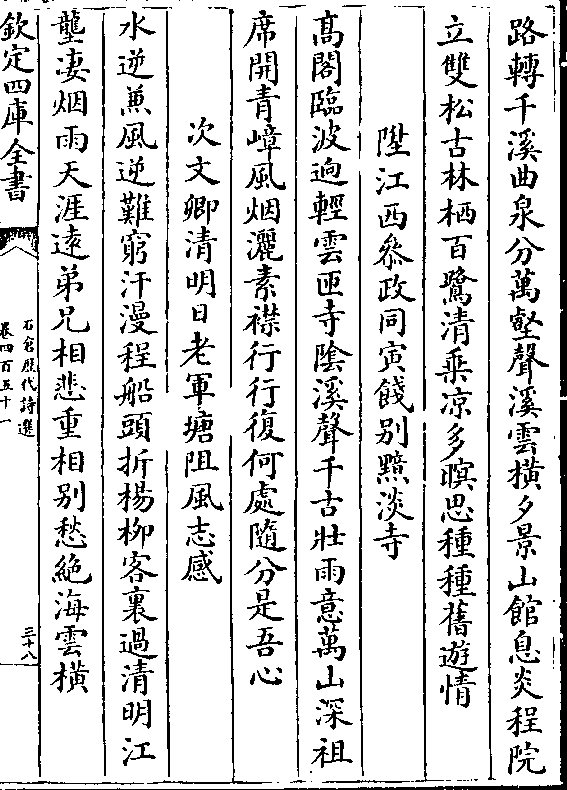 路轉千溪曲泉分萬壑聲溪雲横夕景山館息炎程院
立雙松古林栖百鷺清乗凉多暝思種種舊遊情
陞江西叅政同寅餞别黯淡寺
髙閣臨波逈輕雲匝寺隂溪聲千古壮雨意萬山深祖
席開青嶂風烟灑素襟行行復何處隨分是吾心
次文卿清明日老軍塘阻風志感
水逆兼風逆難窮汗漫程船頭折楊柳客裏過清明江
壟凄烟雨天涯逺弟兄相悲重相别愁絶海雲横
欽定四庫全書
石倉歴代詩選
卷四百五十一
三十八